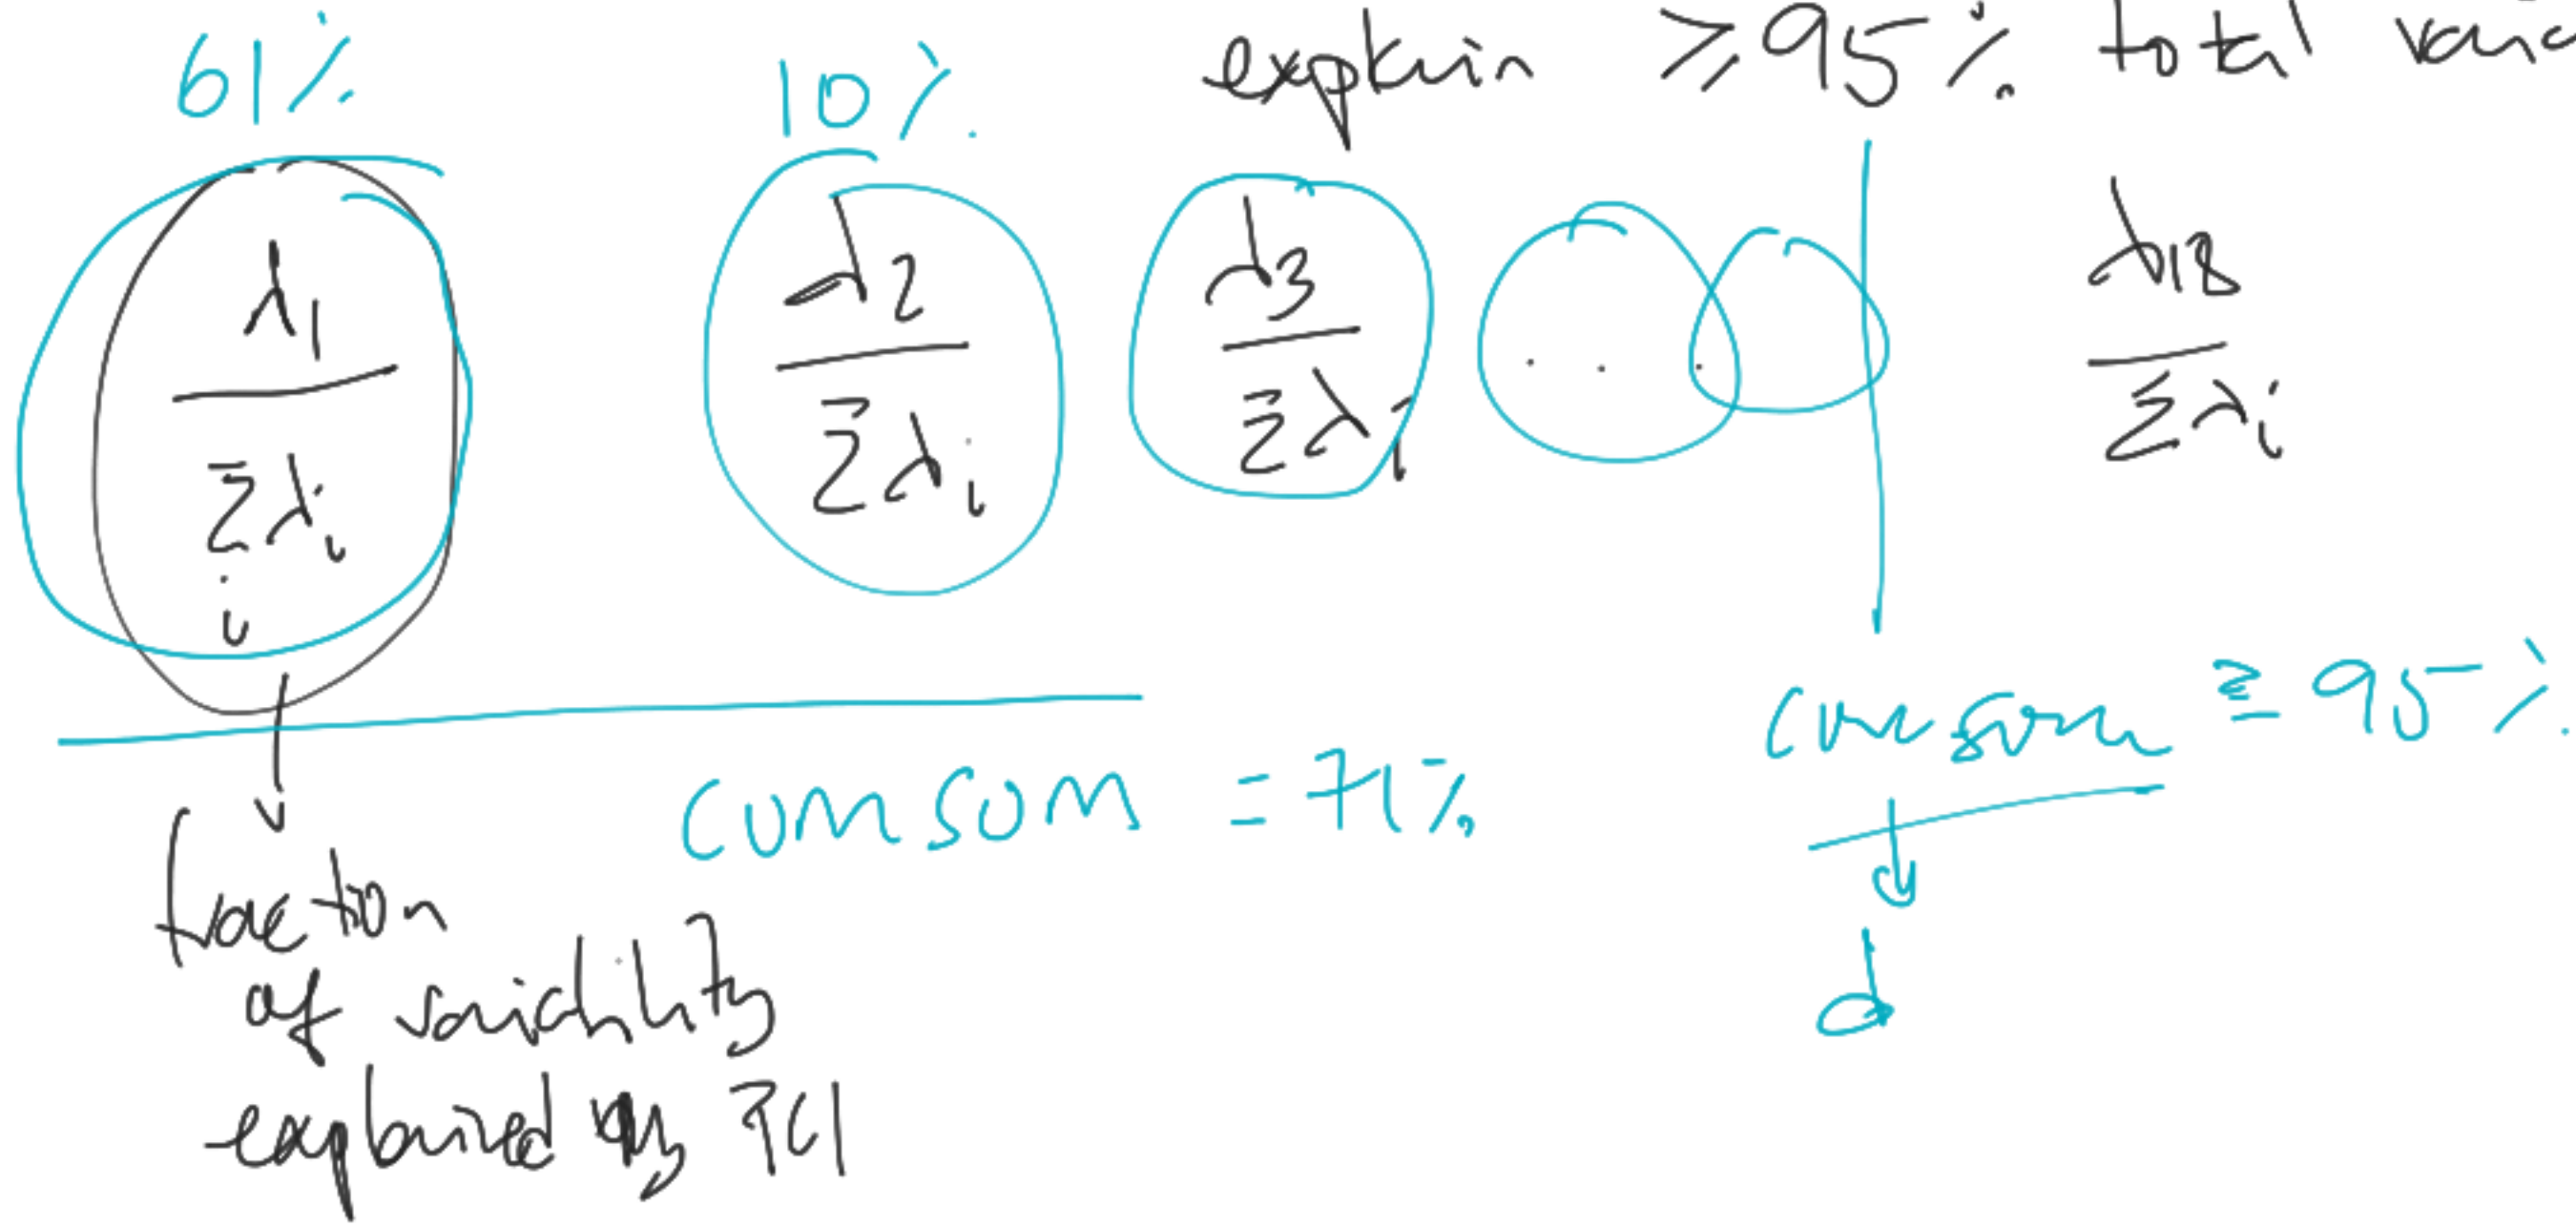 61% 10% explain ≥95% total
λ1 / Σλi i λ2 / Σλi λ3 / Σλi . . . λ18 / Σλi
cumsom = 71% cumsom ≥ 95%
fraction
of variability
explained by PC1
d